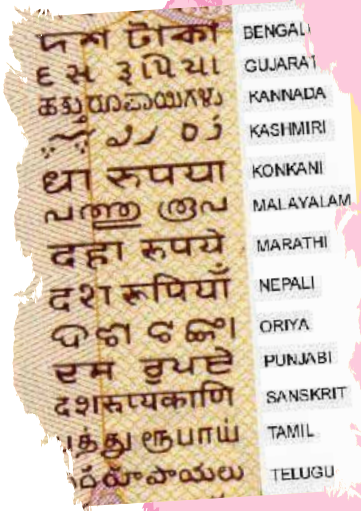 দশ টাকা BENGALI
દસ રૂપિયા GUJARAT
ಹತ್ತು ರೂಪಾಯಿಗಳು KANNADA
KASHMIRI
धा रुपया KONKANI
പത്തു രൂപ MALAYALAM
दहा रुपये MARATHI
दश रूपियाँ NEPALI
ଦଶ ଟଙ୍କା ORIYA
ਦਸ ਰੁਪਏ PUNJABI
दशरूप्यकाणि SANSKRIT
பத்து ரூபாய் TAMIL
రూపాయలు TELUGU